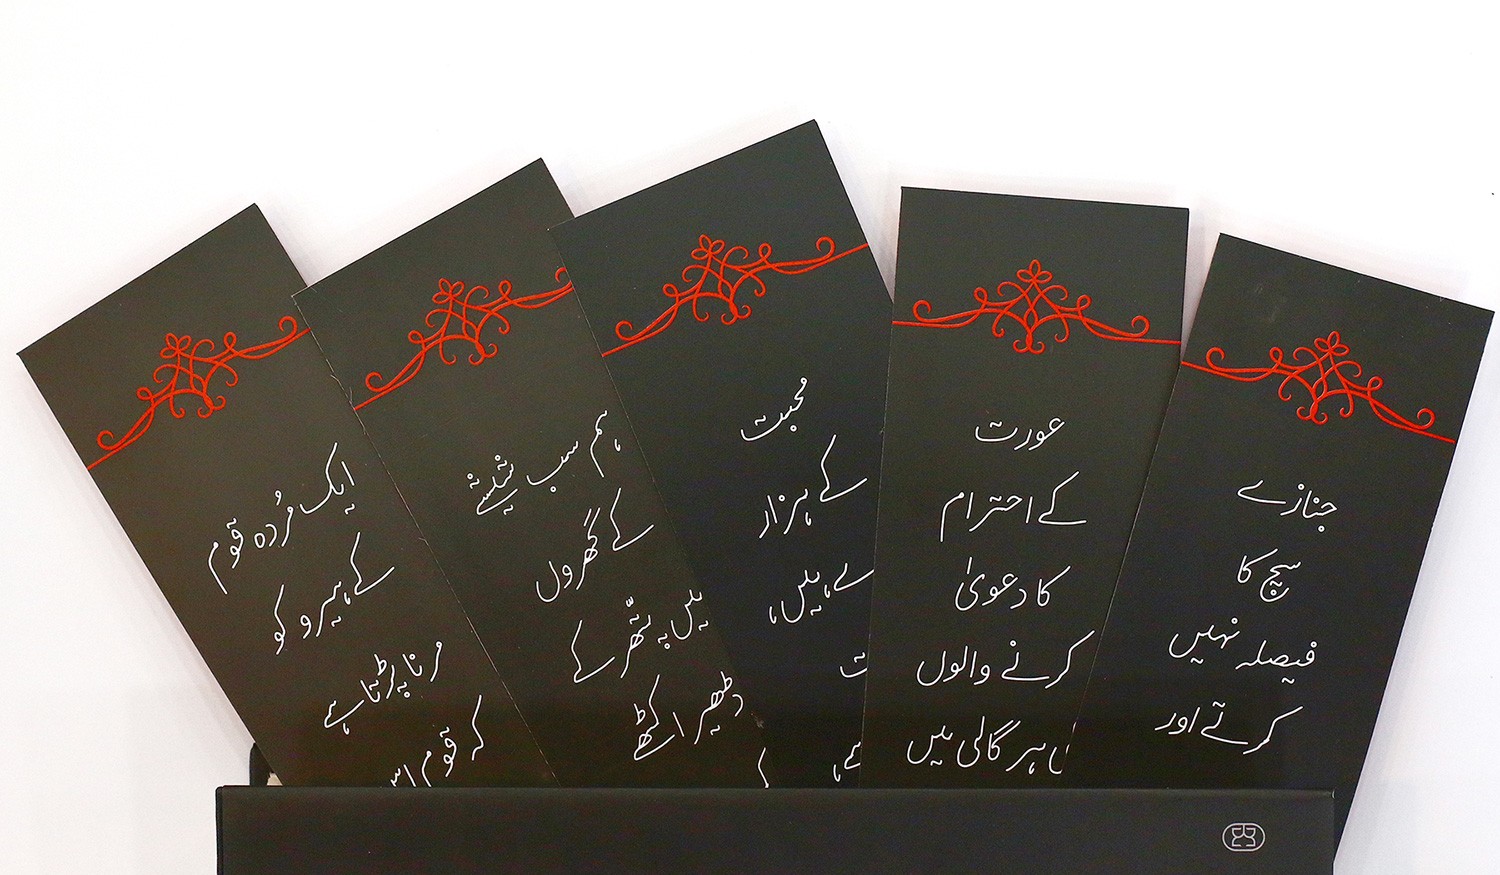 ایک مُردہ قوم
کے ہیرو کو
مرنا پڑتا ہے
کہ قوم اس
ہم سب شیشے
کے گھروں
میں پتّھر کے
ڈھیر اکٹھے
محبت
کے ہزار
ہیں،
عورت
کے احترام
کا دعویٰ
کرنے والوں
ہر گالی میں
جنازے
سچ کا
فیصلہ نہیں
کرتے اور